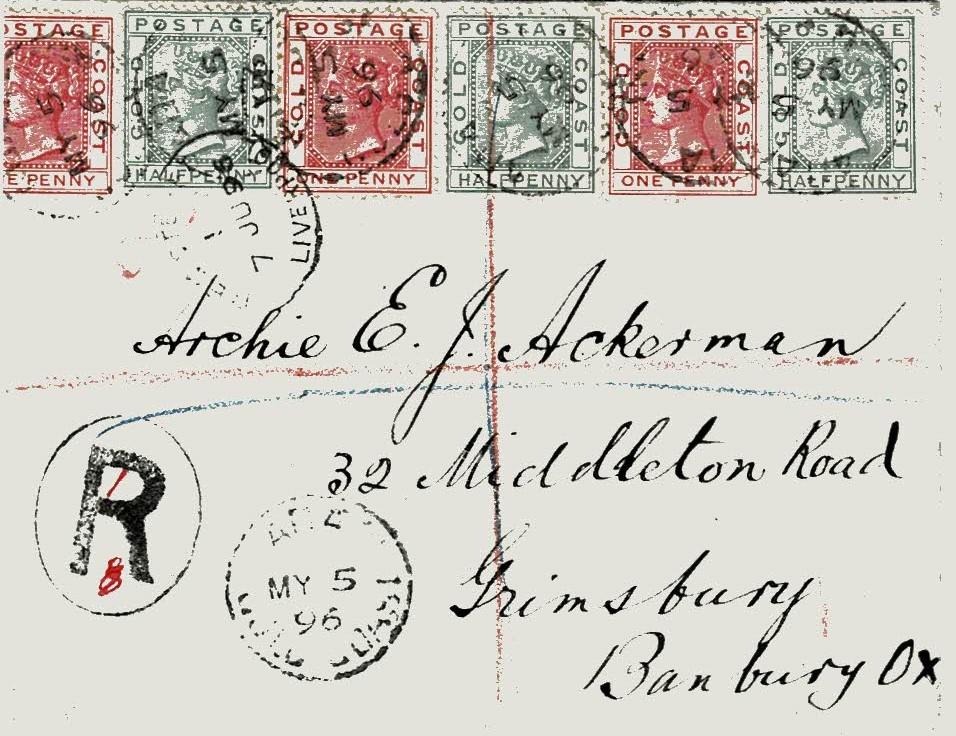 POSTAGE COAST E PENNY
POSTAGE GOLD COAST HALFPENNY
POSTAGE GOLD COAST ONE PENNY
POSTAGE GOLD COAST HALFPENNY
POSTAGE GOLD COAST ONE PENNY
POSTAGE GOLD COAST HALFPENNY
LIVE
7 JU 96
Archie E. J. Ackerman
32 Middleton Road
Grimsbury
Banbury Ox
R
MY 5
96